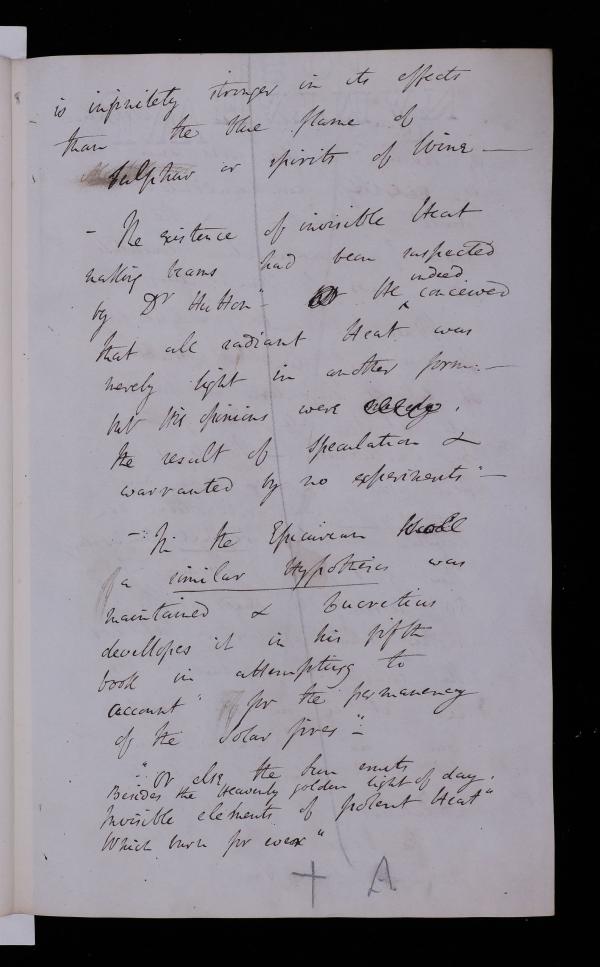 is infinitely stronger in its effects
than the blue flame of
Sulphur or spirits of Wine —
– The existence of invisible Heat
making beams had been suspected
by Dr Hutton" He indeed conceived
that all radiant Heat was
merely light in another form. —
but his opinions were
the result of speculation &
warranted by no experiments" —
– In the Epicurean
a similar Hypothesis was
maintained & Lucretius
developes it in his fifth
book in attempting to
account "for the permanency
of the Solar fires" –
"Or else the Sun emits
Besides the Heavenly golden light of day.
Invisible elements of potent Heat"
Which burn for ever"
+ A